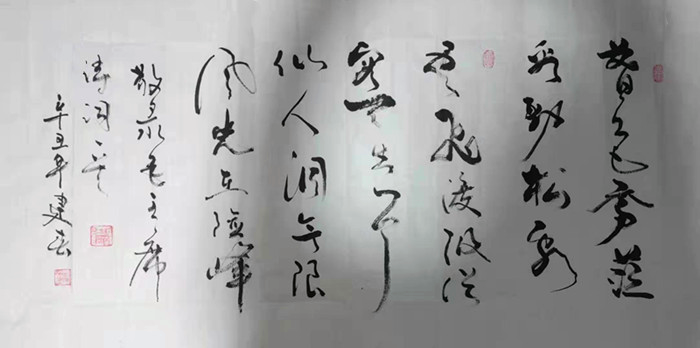 暮色苍茫
看劲松乱
云飞渡仍从
容天生一个
仙人洞无限
风光在险峰
敬录毛主席
诗词一首
辛丑年建